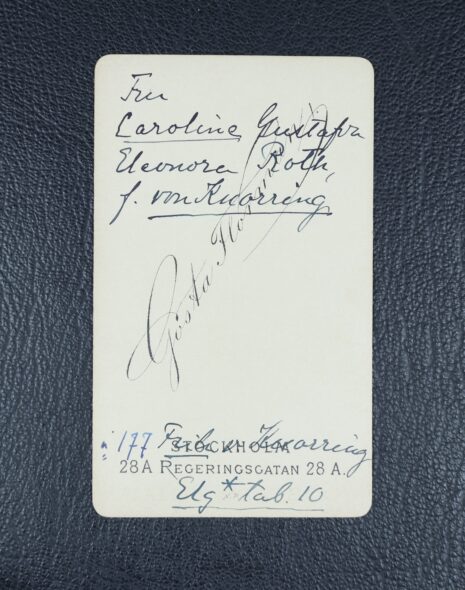 Fru
Caroline Gustafva
Eleonora Roth,
f. von Knorring
Gösta Florman
177 Frih. v. Knorring
STOCKHOLM
28A REGERINGSGATAN 28 A.
Elg* tab. 10